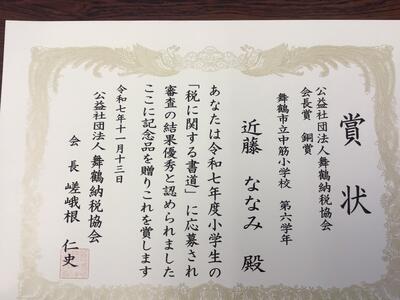 賞状
公益社団法人舞鶴納税協会
会長賞 銅賞
舞鶴市立中筋小学校 第六学年
近藤 ななみ 殿
あなたは令和七年度小学生の
「税に関する書道」に応募され
審査の結果優秀と認められました
ここに記念品を贈りこれを賞します
令和七年十一月十三日
公益社団法人 舞鶴納税協会
会長 嵯峨根 仁史